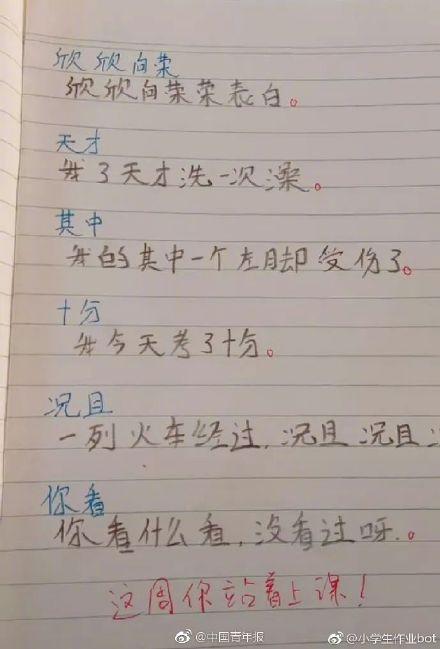 欣欣向荣
欣欣向荣荣表白。
天才
我3天才洗一次澡。
其中
我的其中一个左脚却受伤了。
十分
我今天考了十分。
况且
一列火车经过,况且 况且
你看
你看什么看,没看过呀。
这周你站着上课!
@中国青年报
@小学生作业bot